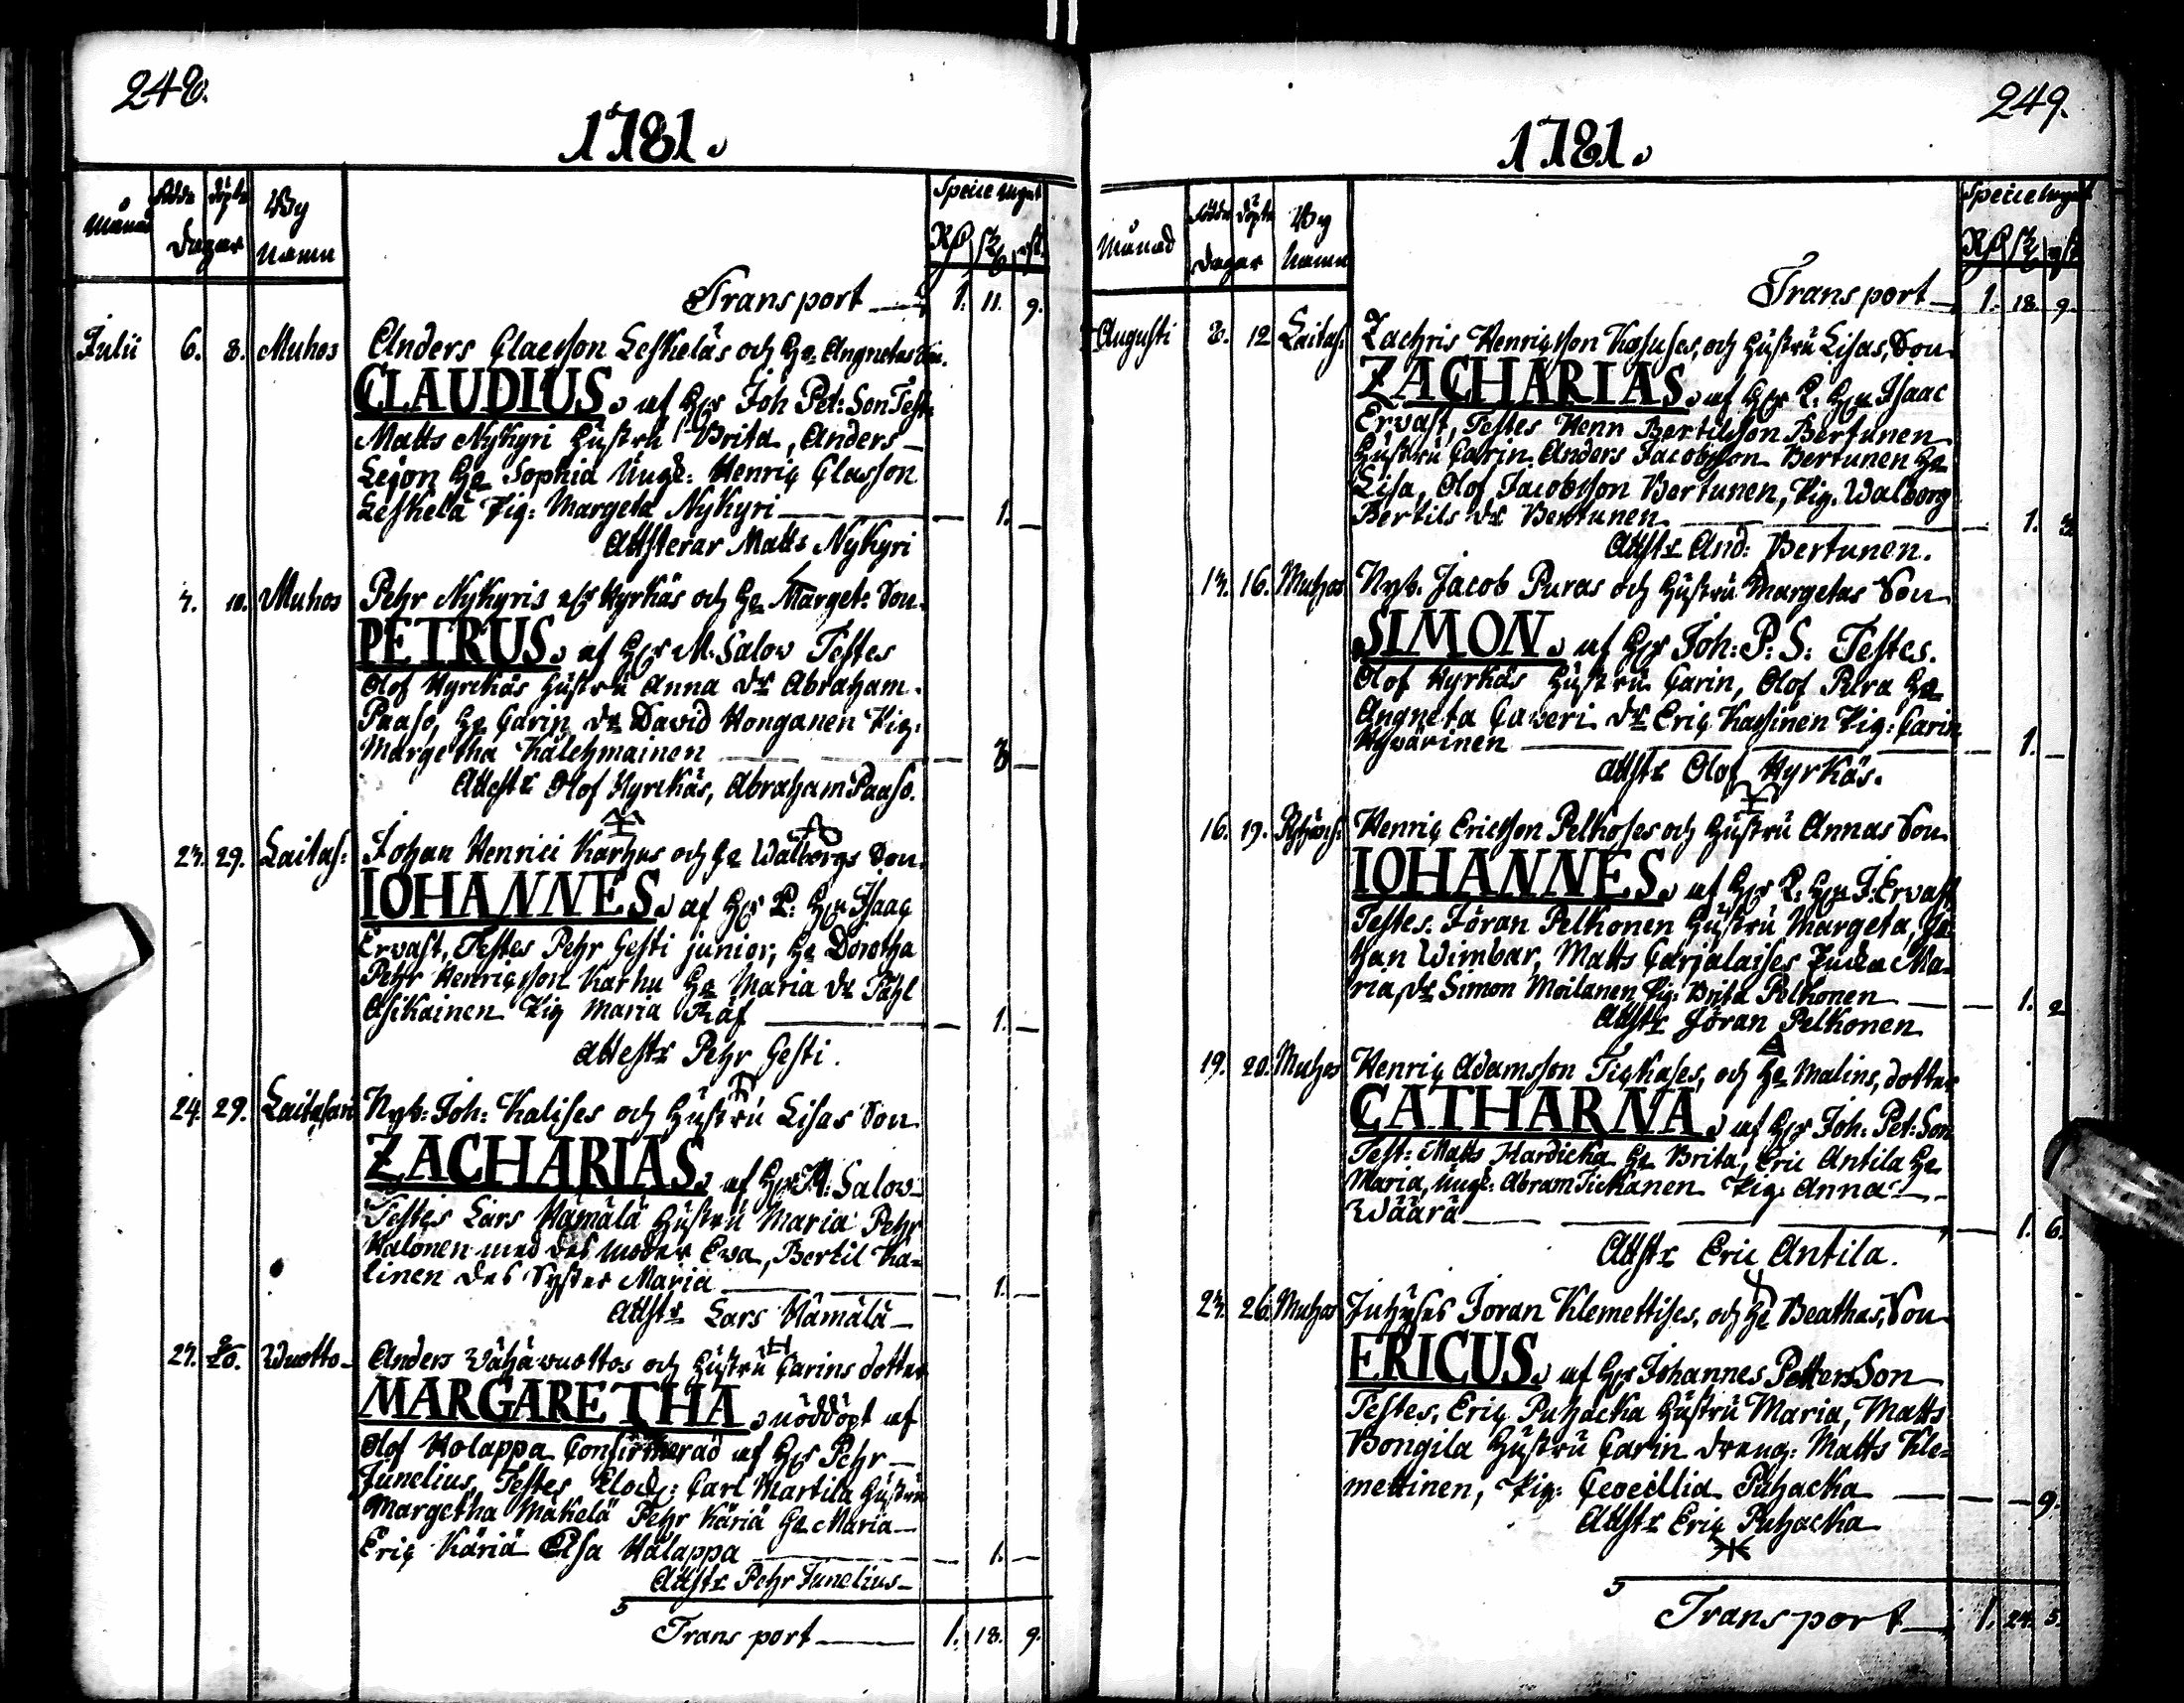 248.
1781.
Månad
födde döpte
dagar
By
Namn
Specie wigt
Transport 1. 11. 9.
Julii 6. 8. Muhos Anders Claesson Leskeläs och Hu Angnetas Son.
CLAUDIUS, af Hr Joh Pet: Son Test:
Matts Nykyri Hustru Brita, Anders
Lejon Hu Sophia Ungk: Henric Classon
Leskelä Pig: Margeta Nykyri 1.
Attsterar Matts Nykyri
7. 10. Muhos Pehr Nykyris Hyrkäs och Hu Marget: Son
PETRUS, af Hr M: Salov Testes
Olof Hyrckäs Hustru Anna dr Abraham
Paaso, Hu Carin, dr David Honganen Pig:
Margetha Kälchmainen
Attestr Olof Hyrckäs, Abraham Paaso.
27. 29. Laitas: Johan Henrici Karhus och Hu Walborgs Son:
IOHANNES, af Hr P: Hr Isaac
Ervast, Testes Pehr Gesti junior, Hu Dorotha
Pehr Henricsson Karhu Hu Maria dr Påhl
Asikainen Pig Maria Räf 1.
Attestr Pehr Gesti.
24. 29. Laitasari Nyb: Joh: Kalises och Hustru Lisas Son
ZACHARIAS, af Hr M: Salov
Testes Lars Hämälä Hustru Maria Pehr
Halonen med des moder Eva, Bertil Ka=
linen des Syster Maria 1.
Attstr Lars Hämälä
27. Wuotto Anders Wähäwuottos och Hustru Carins dotter
MARGARETHA, nöddöpt af
Olof Holappa Confirmerad af Hr Pehr
Junelius, Testes Klock: Carl Martila Hustru
Margetha Mäkelä Pehr Käriä Hu Maria
Eric Käriä Elsa Halappa 1.
Attstr Pehr Junelius
5
Transport 1. 18. 9.
249.
1781.
Månad
födde döpte
dagar
By
Namn
Specie wigt
Transport 1. 18. 9.
Augusti 8. 12 Laitas: Zachris Henricsson Kosuses, och Hustru Lisas, Son
ZACHARIAS, af Hr P. Hr Isaac
Ervast, Testes Henn Bertilsson Bertunen
Hustru Carin. Anders Jacobsson Bertunen Hu
Lisa, Olof Jacobsson Bertunen, Pig. Walborg
Bertils dr Bertunen 1. 3.
Attstr And: Bertunen.
13. 16. Muhos Nyb. Jacob Puras och Hustru Margetas Son
SIMON, af Hr Joh: P: S: Testes.
Olof Hyrkäs Hustru Carin, Olof Pura Hu
Angneta Caveri dr Eric Kassinen Pig: Carin
Hyvärinen 1.
Attstr Olof Hyrkäs.
16. 19. Henric Ericsson Pelkoses och Hustru Annas Son
IOHANNES, af Hr P. Hr I: Ervast
Testes. Jöran Pelkonen Hustru Margeta, Jo=
han Wimbar, Matts Carjalaises Enda Ma=
ria, dr Simon Moilanen Pig: Brita Pelkonen 1. 2
Attstr Jöran Pelkonen
19. 20. Muhos Henric Adamsson Tickases, och Hu Malins, dotter
CATHARNA, af Hr Joh: Pet: Son
Test: Matts Hardicka Hu Brita, Eric Antila Hu
Maria, Ungk: Abram Tickanen Pig: Anna
Wäärä 1. 6.
Attstr Eric Antila.
23. 26. Muhos Juhyses Joran Klemettises, och Hu Beathas, Son
ERICUS, af Hr Johannes Petters Son
Testes, Eric Puhacka Hustru Maria, Matts
Bongila Hustru Carin dreng: Matts Kle=
mettinen, Pig: Cecellia Puhacka 9.
Attstr Eric Puhacka
5
Transport 1. 24. 5.